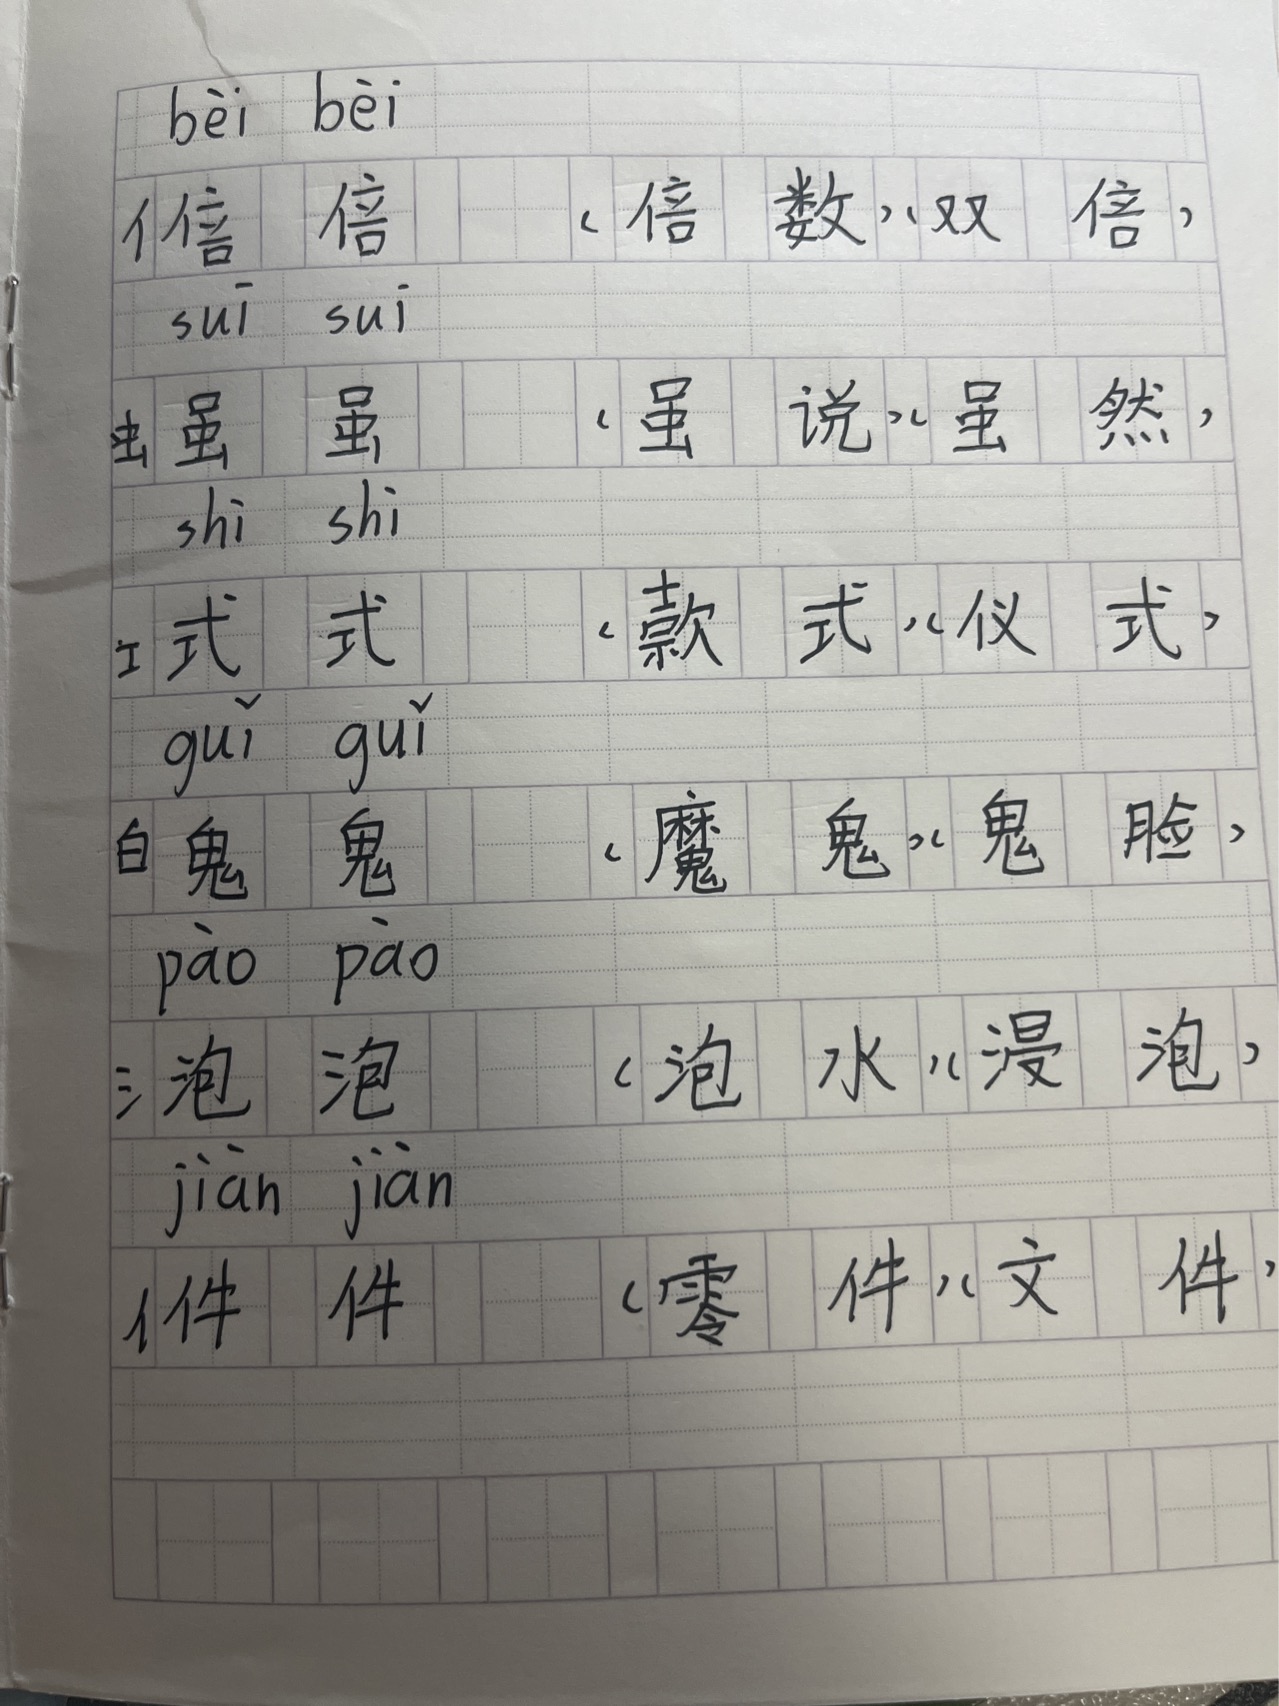 bèi bèi
亻倍 倍 （倍 数）（双 倍）
suī suī
虫虽 虽 （虽 说）（虽 然）
shì shì
工式 式 （款 式）（仪 式）
guǐ guǐ
白鬼 鬼 （魔 鬼）（鬼 脸）
pào pào
氵泡 泡 （泡 水）（浸 泡）
jiàn jiàn
亻件 件 （零 件）（文 件）